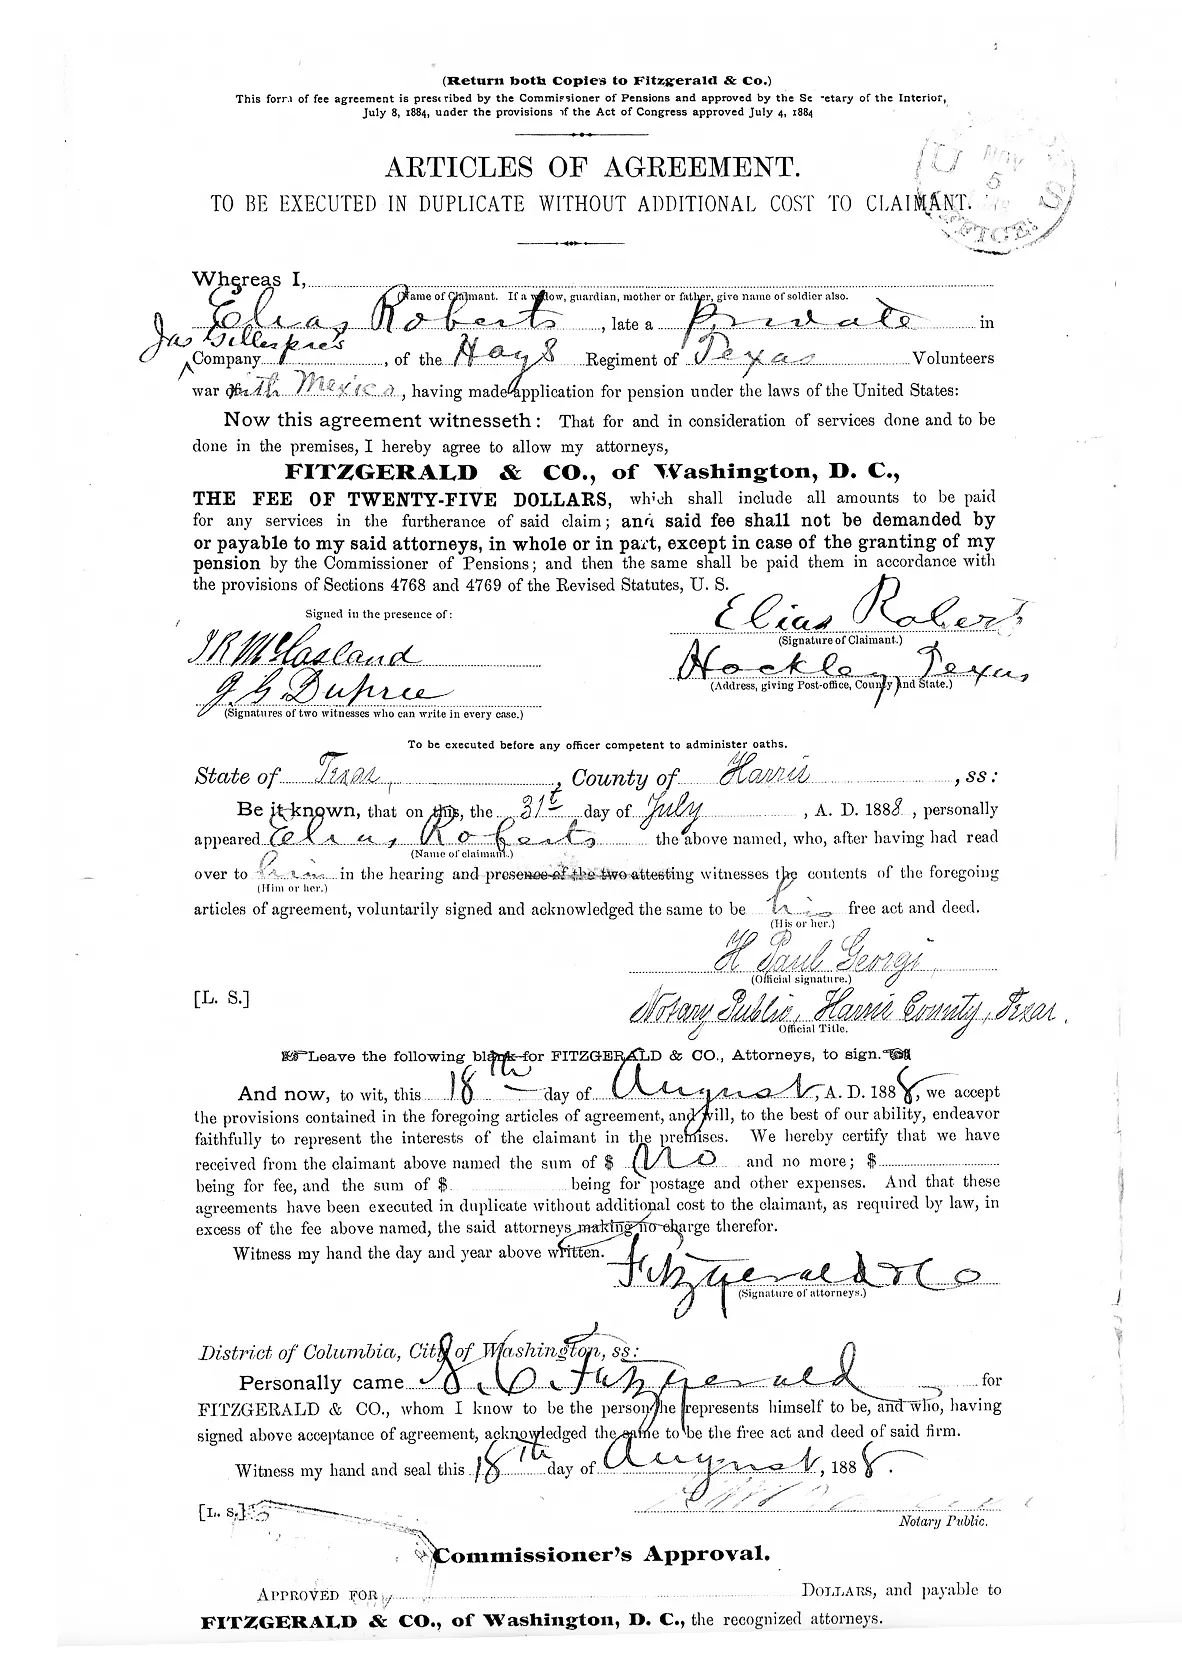 (Return both Copies to Fitzgerald & Co.)
This form of fee agreement is prescribed by the Commissioner of Pensions and approved by the Secretary of the Interior,
July 8, 1884, under the provisions of the Act of Congress approved July 4, 1884
ARTICLES OF AGREEMENT.
TO BE EXECUTED IN DUPLICATE WITHOUT ADDITIONAL COST TO CLAIMANT.
U NOV 5 OFFICE U S
Whereas I,
(Name of Claimant. If a widow, guardian, mother or father, give name of soldier also.
Elias Roberts, late a private in
Jas Gillespie's
Company, of the Hays Regiment of Texas Volunteers
war with Mexico, having made application for pension under the laws of the United States:
Now this agreement witnesseth: That for and in consideration of services done and to be
done in the premises, I hereby agree to allow my attorneys,
FITZGERALD & CO., of Washington, D. C.,
THE FEE OF TWENTY-FIVE DOLLARS, which shall include all amounts to be paid
for any services in the furtherance of said claim; and said fee shall not be demanded by
or payable to my said attorneys, in whole or in part, except in case of the granting of my
pension by the Commissioner of Pensions; and then the same shall be paid them in accordance with
the provisions of Sections 4768 and 4769 of the Revised Statutes, U. S.
Signed in the presence of:
Elias Roberts
(Signature of Claimant.)
J R McCasland
Hockley, Texas
(Address, giving Post-office, County and State.)
J. G. Dupree
(Signatures of two witnesses who can write in every case.)
To be executed before any officer competent to administer oaths.
State of Texas, County of Harris, ss:
Be it known, that on this, the 31st day of July, A. D. 1888, personally
appeared Elias Roberts the above named, who, after having had read
(Name of claimant.)
over to him in the hearing and presence of the two attesting witnesses the contents of the foregoing
(Him or her.)
articles of agreement, voluntarily signed and acknowledged the same to be his free act and deed.
(His or her.)
H Paul Georgi,
(Official signature.)
[L. S.]
Notary Public, Harris County, Texas.
Official Title.
Leave the following blank for FITZGERALD & CO., Attorneys, to sign.
And now, to wit, this 18th day of August, A. D. 1888, we accept
the provisions contained in the foregoing articles of agreement, and will, to the best of our ability, endeavor
faithfully to represent the interests of the claimant in the premises. We hereby certify that we have
received from the claimant above named the sum of $ no and no more; $
being for fee, and the sum of $ being for postage and other expenses. And that these
agreements have been executed in duplicate without additional cost to the claimant, as required by law, in
excess of the fee above named, the said attorneys making no charge therefor.
Witness my hand the day and year above written.
Fitzgerald & Co
(Signature of attorneys.)
District of Columbia, City of Washington, ss:
Personally came S. C. Fitzgerald for
FITZGERALD & CO., whom I know to be the person he represents himself to be, and who, having
signed above acceptance of agreement, acknowledged the same to be the free act and deed of said firm.
Witness my hand and seal this 18th day of August, 1888.
[L. S.]
Notary Public.
Commissioner's Approval.
APPROVED FOR DOLLARS, and payable to
FITZGERALD & CO., of Washington, D. C., the recognized attorneys.